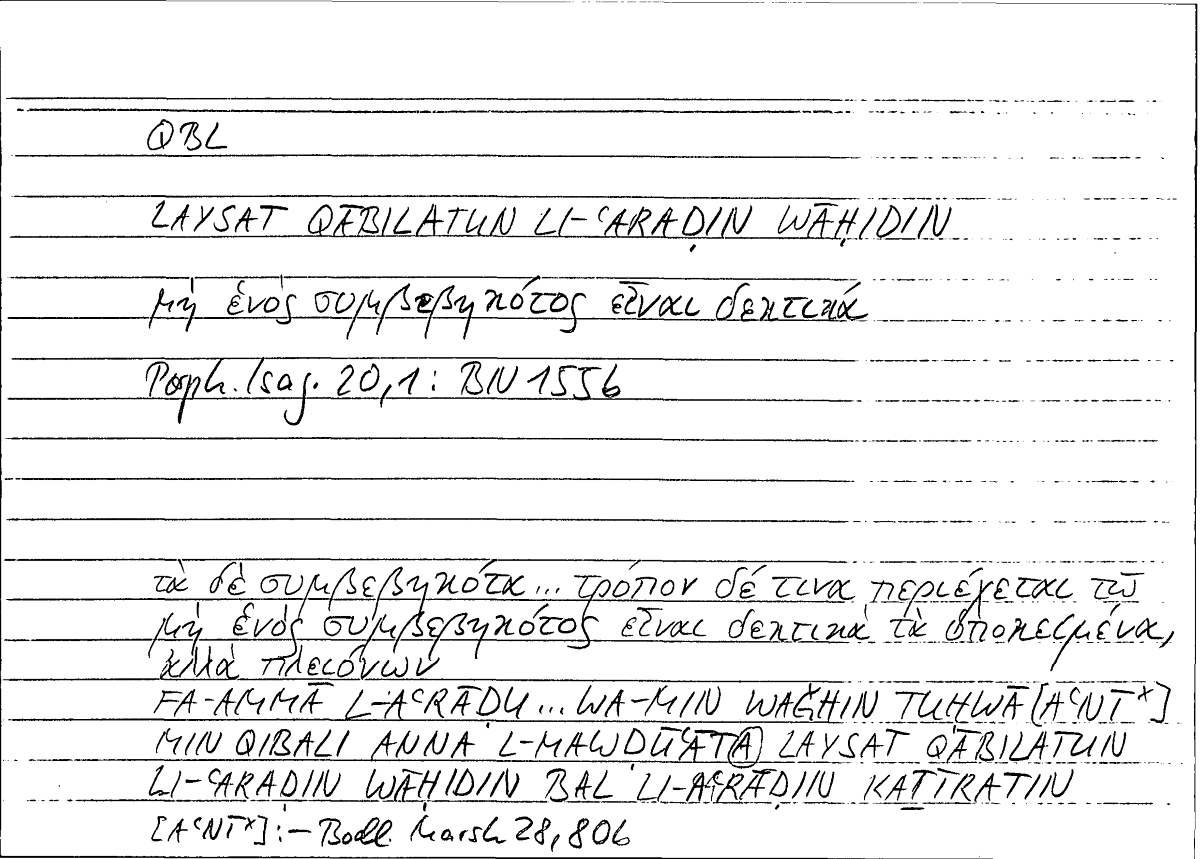 QBL
LAYSAT QĀBILATUN LI-ʿARAḌIN WĀḤIDIN
μὴ ἑνὸς συμβεβηκότος εἶναι δεκτικά
Porph. Isag. 20,1: BN 155b
τὰ δὲ συμβεβηκότα... τρόπον δέ τινα περιέχεται τῷ
μὴ ἑνὸς συμβεβηκότος εἶναι δεκτικὰ τὰ ὑποκείμενα,
ἀλλὰ πλειόνων
FA-AMMĀ L-AʿRĀḌU... WA-MIN WAǦHIN TUḤWĀ [AʿNTˣ]
MIN QIBALI ANNA L-MAWḌŪʿĀTA LAYSAT QĀBILATUN
LI-ʿARAḌIN WĀḤIDIN BAL LI-AʿRĀḌIN KAṮĪRATIN
[AʿNTˣ]: - Bodl. Marsh 28, 80b